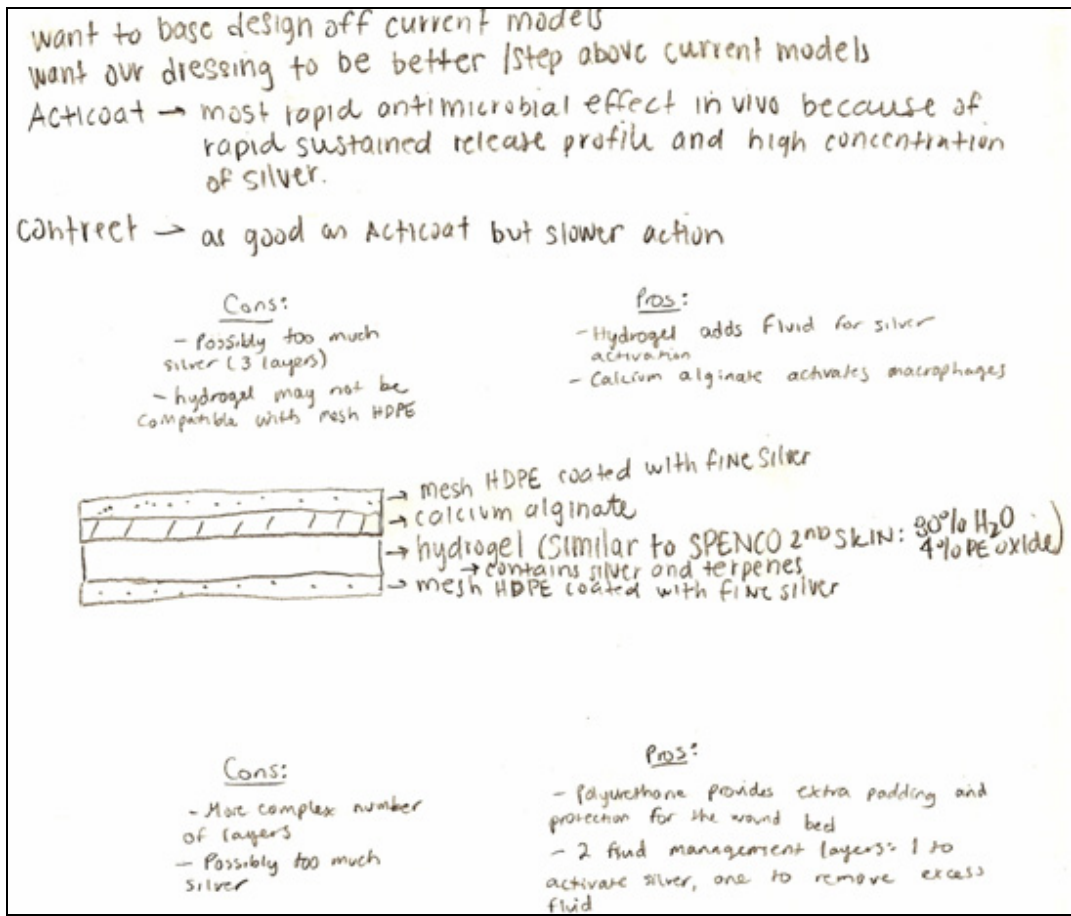 want to base design off current models
want our dressing to be better /step above current models
Acticoat → most rapid antimicrobial effect in vivo because of
rapid sustained release profile and high concentration
of silver.
Contreet → as good as Acticoat but slower action
Cons:
- Possibly too much
silver (3 layers)
- hydrogel may not be
compatible with mesh HDPE
Pros:
- Hydrogel adds fluid for silver
activation
- Calcium alginate activates macrophages
→ mesh HDPE coated with fine silver
→ calcium alginate
→ hydrogel (similar to SPENCO 2ND SKIN: 90% H2O
4% PE oxide)
→ contains silver and terpenes
→ mesh HDPE coated with fine silver
Cons:
- More complex number
of layers
- Possibly too much
silver
Pros:
- Polyurethane provides extra padding and
protection for the wound bed
- 2 fluid management layers: 1 to
activate silver, one to remove excess
fluid